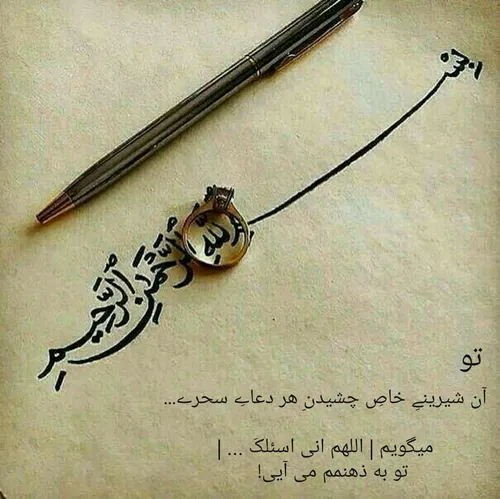 بسم الله الرحمن الرحیم
تو
آن شیرینےِ خاصِ چشیدنِ هر دعاےِ سحرے...
میگویم | اللهم انی اسئلکَ ... |
تو به ذهنمم می آیی!